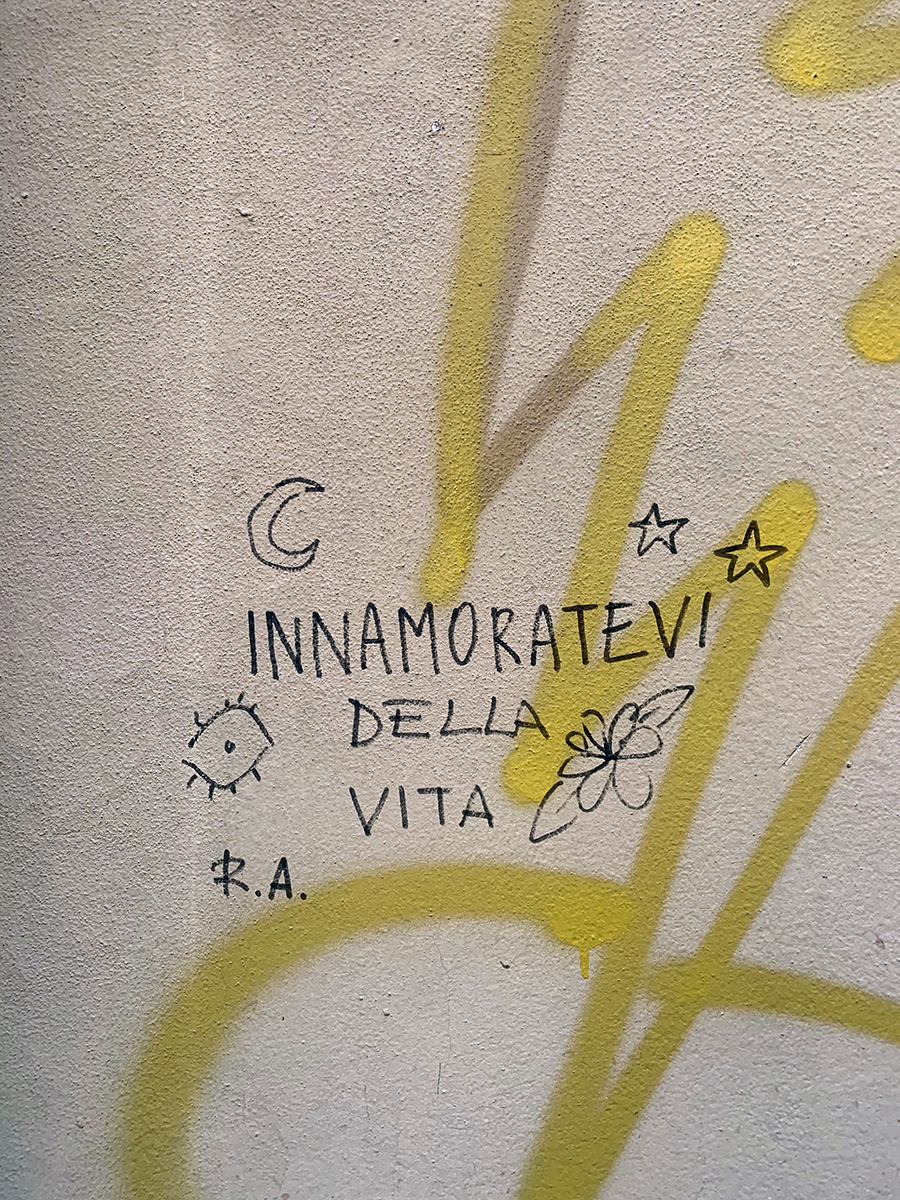 INNAMORATEVI
DELLA
VITA
R.A.